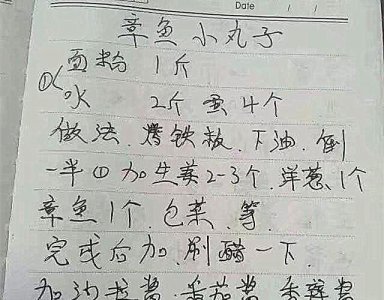 Date / /
章鱼小丸子
① 面粉 1斤
水 2斤 蛋4个
做法.烤铁板.下油.倒
一半①加生菜2-3个.洋葱.1个
章鱼1个.包菜.等.
完成后加.刷醋一下
加沙拉酱.番茄酱.